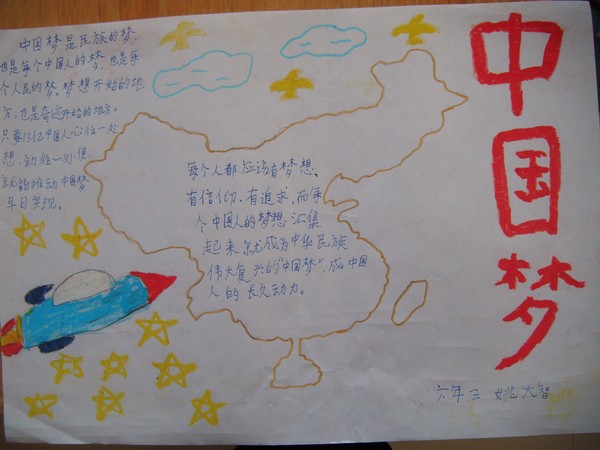 中国梦
中国梦是民族的梦,
也是每个中国人的梦,也是每
个人民的梦。梦想开始的地
方,也是奇迹开始的地方。
只要13亿中国人心往一处
想,劲往一处使,
就能推动中国梦
早日实现。
每个人都应该有梦想、
有信仰、有追求,而每
个中国人的梦想汇集
起来就成为中华民族
伟大复兴的“中国梦”,成中国
人的长久动力。
六年三 姚大智